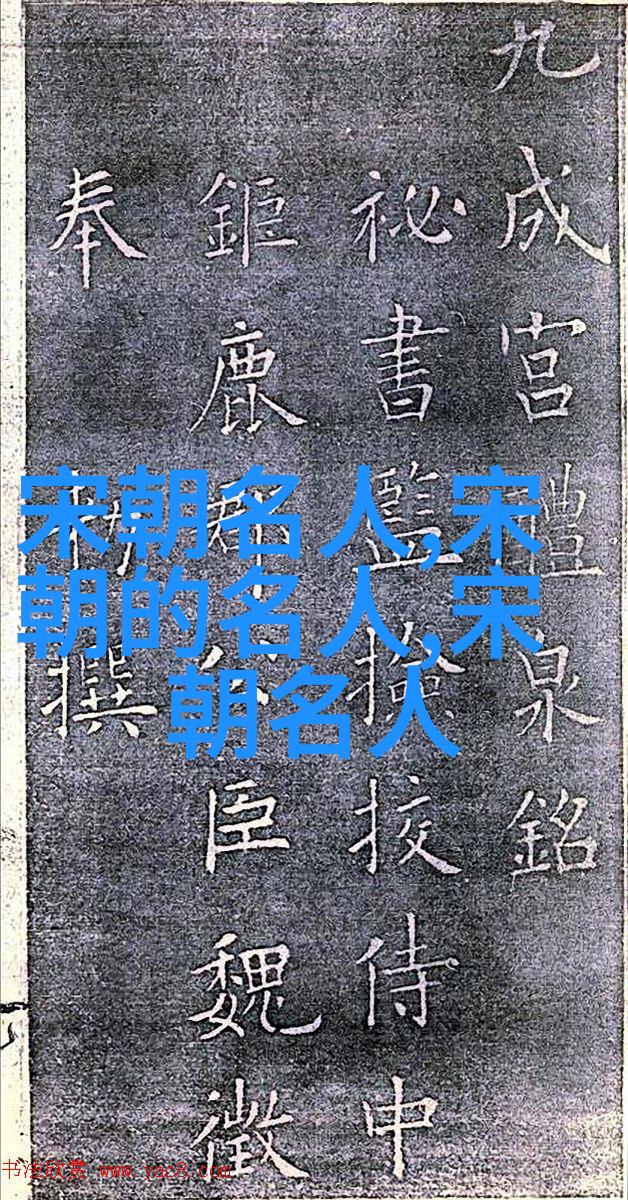 九成宫醴泉銘
祕書監撿挍侍中
鉅鹿郡公臣魏徵
奉勑撰
宋朝名人,宋
朝的名人,宋
朝名人
书法欣赏 www.yac8.com